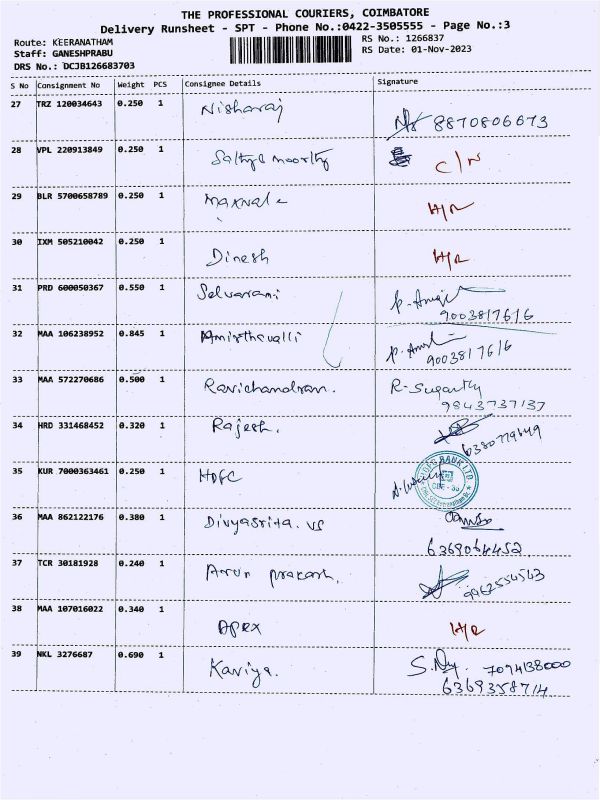 THE PROFESSIONAL COURIERS, COIMBATORE
Delivery Runsheet - SPT - Phone No.:0422-3505555 - Page No.:3
Route: KEERANATHAM
RS No.: 1266837
Staff: GANESHPRABU
RS Date: 01-Nov-2023
DRS No.: DCJB126683703
S No Consignment No Weight PCS Consignee Details Signature
27 TRZ 120034643 0.250 1 Nisharaj 8870806673
28 VPL 220913849 0.250 1 Sathya moorthy C/N
29 BLR 5700658789 0.250 1 H/R
30 IXM 505210042 0.250 1 Dinesh H/R
31 PRD 600050367 0.550 1 Selvarani
9003817616
32 MAA 106238952 0.845 1 Amirthavalli
9003817616
33 MAA 572270686 0.500 1 Ravichandran. R-Suganthy
9843737137
34 HRD 331468452 0.320 1 Rajesh.
6380779649
35 KUR 7000363461 0.250 1 HDFC
36 MAA 862122176 0.380 1 Divyasrita. vs
6369064452
37 TCR 30181928 0.240 1 Arun prakash. 9962554543
38 MAA 107016022 0.340 1 Apex H/R
39 NKL 3276687 0.690 1 Kaviya. 7094138000
6369358714